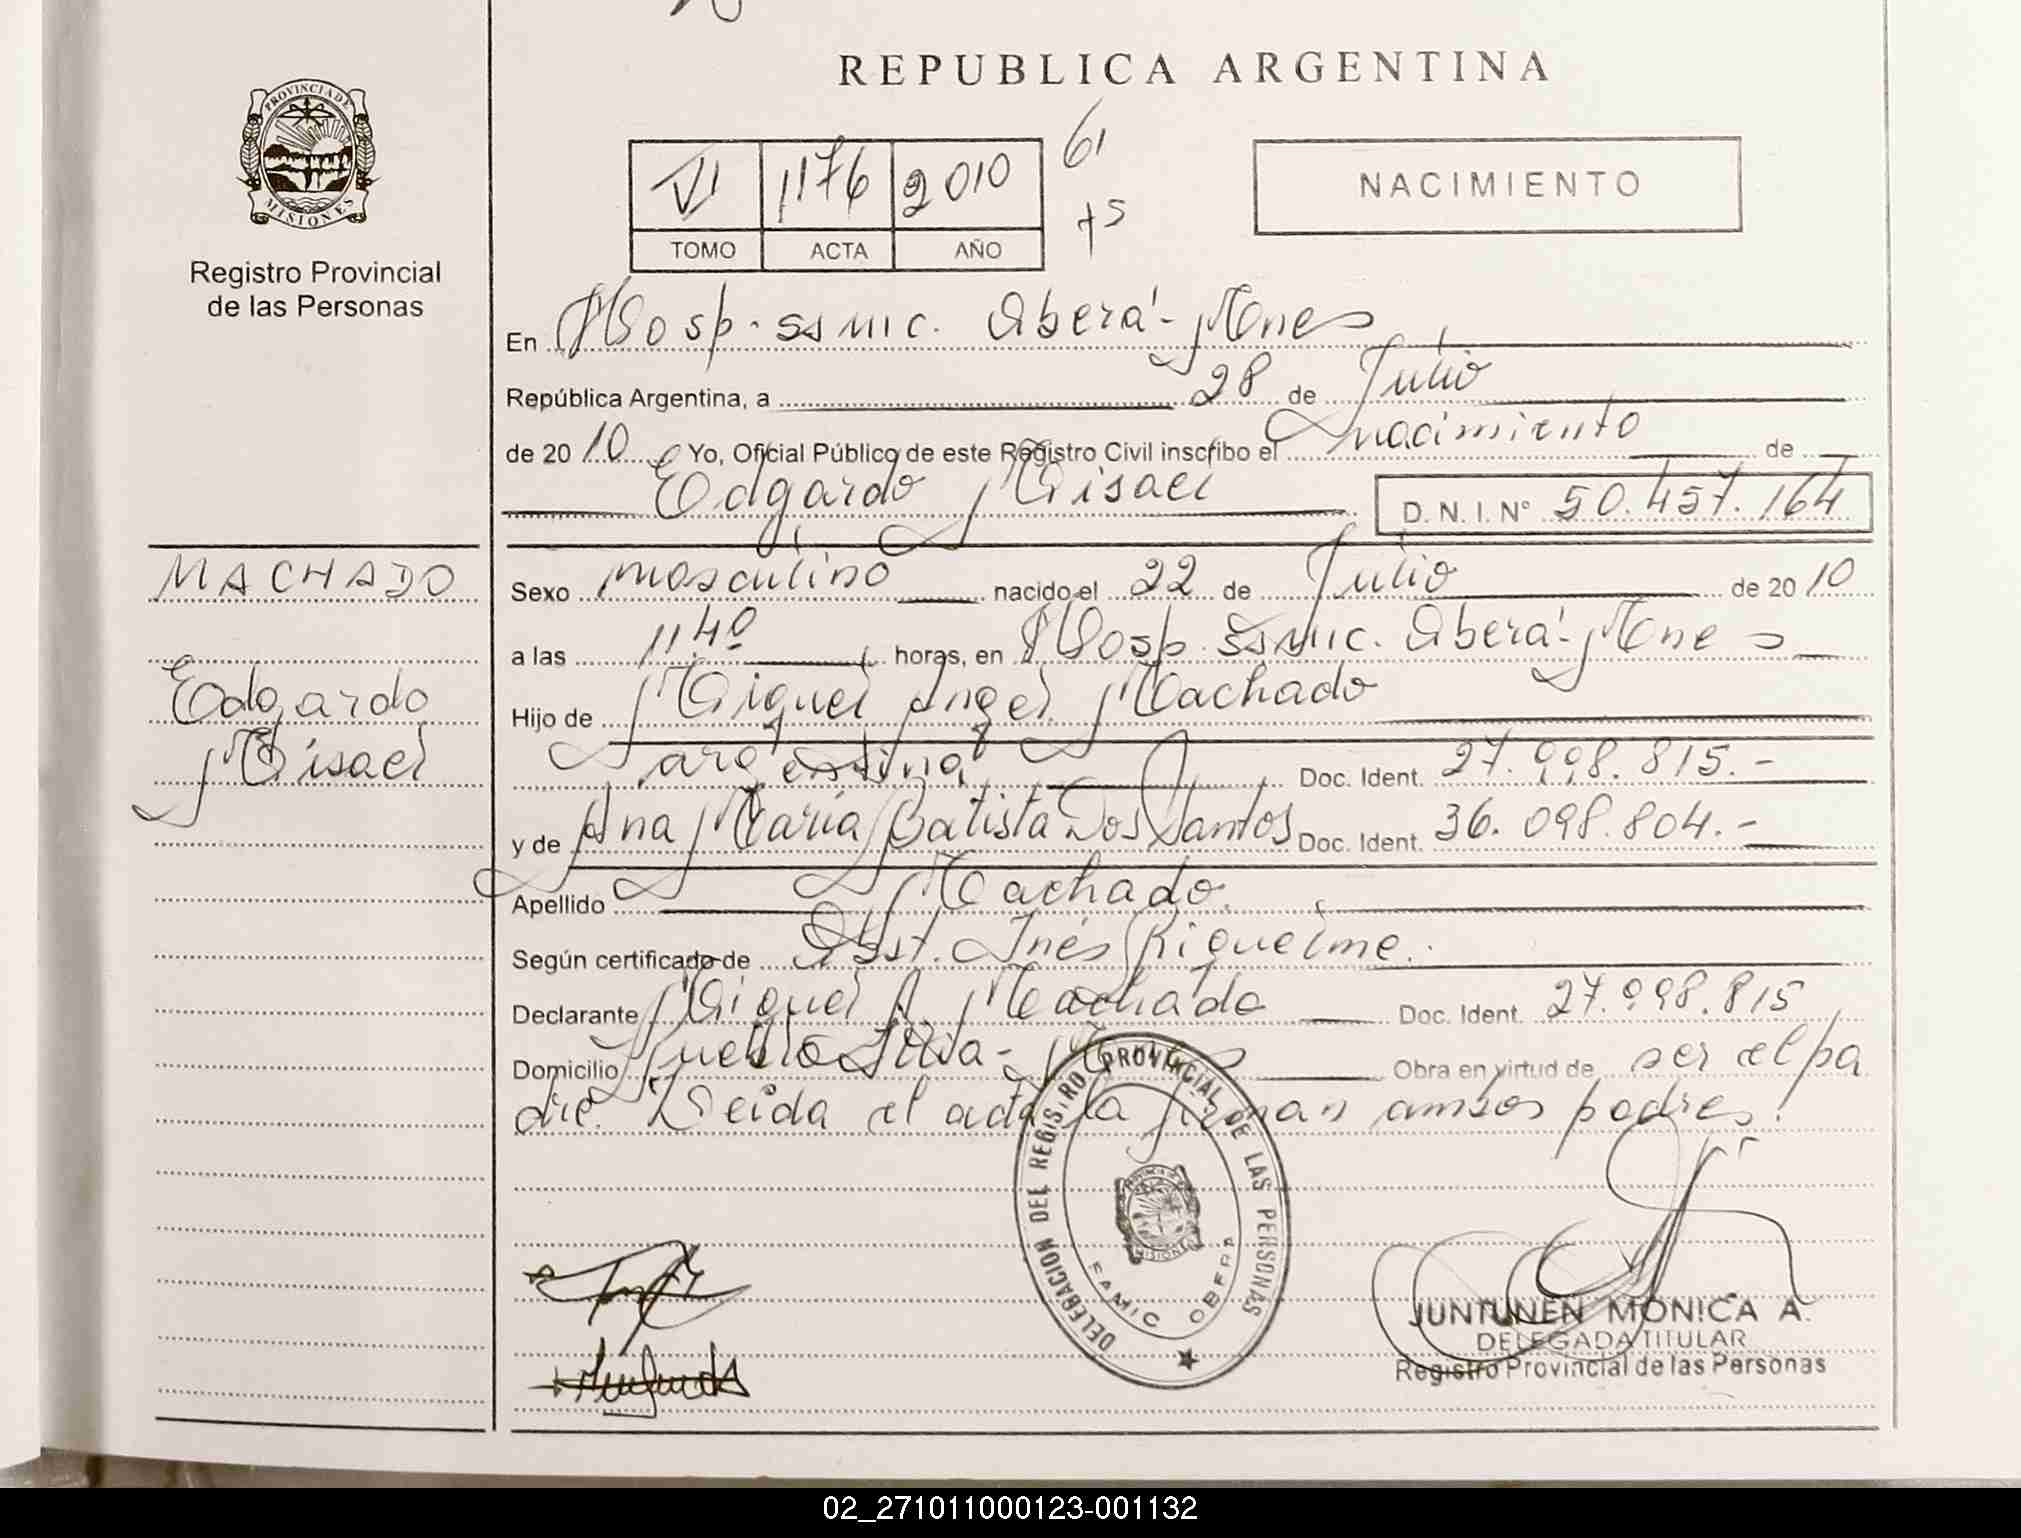 REPUBLICA ARGENTINA
PROVINCIA DE
MISIONES
Registro Provincial
de las Personas
VI 1176 2010
TOMO ACTA AÑO
61
+5
NACIMIENTO
En Hosp. SSMIC. Oberá - Mnes
República Argentina, a 28 de Julio
de 2010 Yo, Oficial Público de este Registro Civil inscribo el nacimiento de
Edgardo Misael D. N. I. N° 50.457.164
MACHADO
Edgardo
Misael
Sexo masculino nacido el 22 de Julio de 2010
a las 11.40 horas, en Hosp. SSMIC. Oberá - Mnes
Hijo de Miguel Angel Machado
argentina Doc. Ident. 27.998.815.-
y de Ana María Batista Dos Santos Doc. Ident. 36.098.804.-
Apellido Machado.
Según certificado de Obst. Inés Riquelme.
Declarante Miguel A. Machado Doc. Ident. 27.998.815
Domicilio Pueblo Illia - Mnes Obra en virtud de ser el pa
dre. Leída el acta la firman ambos padres.
DELEGACION DEL REGISTRO PROVINCIAL DE LAS PERSONAS
MISIONES
SAMIC OBERA
JUNTUNEN MONICA A.
DELEGADA TITULAR
Registro Provincial de las Personas
02_271011000123-001132